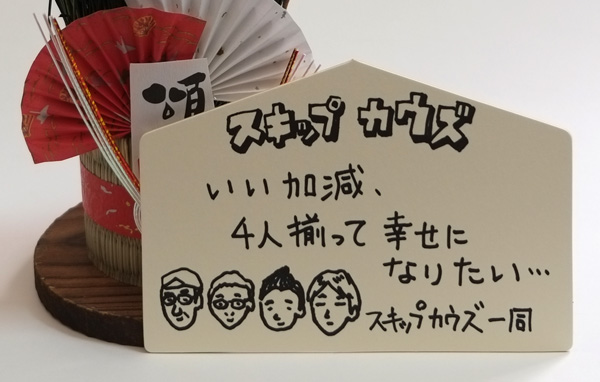 頌
スキップ カウズ
いい加減、
4人揃って 幸せに
なりたい…
スキップカウズ一同